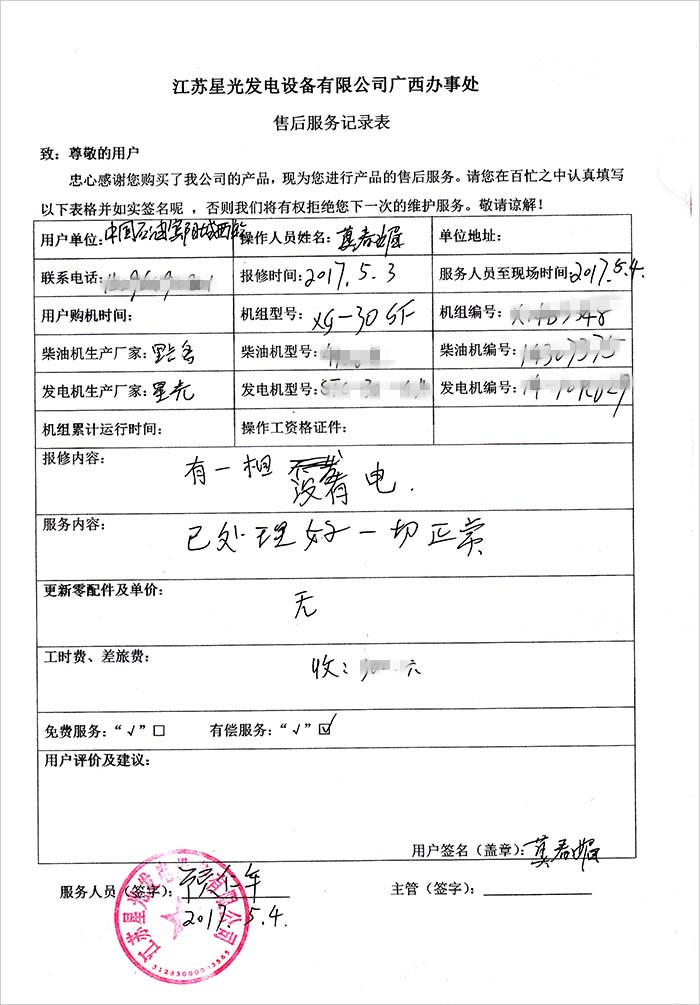 江苏星光发电设备有限公司广西办事处
售后服务记录表
致：尊敬的用户
忠心感谢您购买了我公司的产品，现为您进行产品的售后服务。请您在百忙之中认真填写
以下表格并如实签名呢 ，否则我们将有权拒绝您下一次的维护服务。敬请谅解！
用户单位：中国石油宾阳城西站 操作人员姓名： 单位地址：
联系电话： 报修时间：2017.5.3 服务人员至现场时间：2017.5.4.
用户购机时间： 机组型号：XG-30GF 机组编号：
柴油机生产厂家： 柴油机型号： 柴油机编号：
发电机生产厂家：星光 发电机型号： 发电机编号：
机组累计运行时间： 操作工资格证件：
报修内容： 有一相 没有 电.
服务内容： 已处理好一切正常
更新零配件及单价： 无
工时费、差旅费： 收： 元
免费服务：“√”□ 有偿服务：“√”☑
用户评价及建议：
用户签名（盖章）：
服务人员（签字）： 主管（签字）：
2017.5.4.